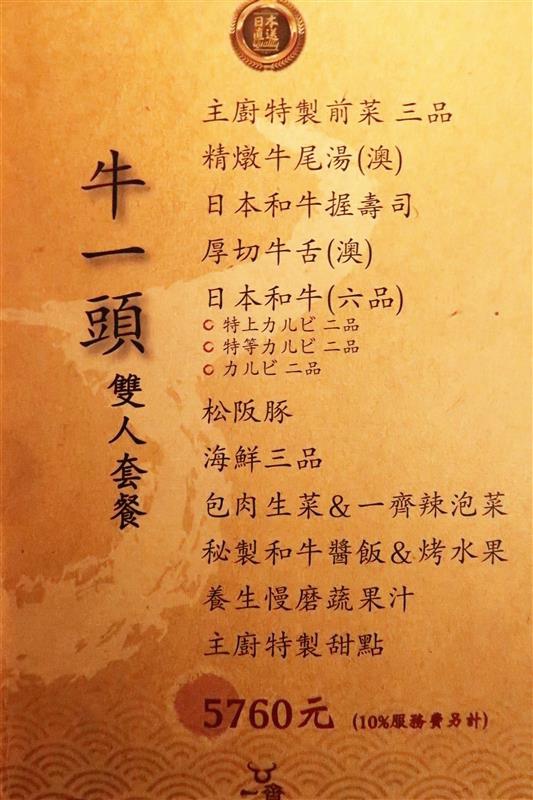 日本
直送
Quality
牛一頭
雙人套餐
主廚特製前菜 三品
精燉牛尾湯(澳)
日本和牛握壽司
厚切牛舌(澳)
日本和牛(六品)
特上カルビ 二品
特等カルビ 二品
カルビ 二品
松阪豚
海鮮三品
包肉生菜&一齊辣泡菜
秘製和牛醬飯&烤水果
養生慢磨蔬果汁
主廚特製甜點
5760元 (10%服務費另計)
一齊